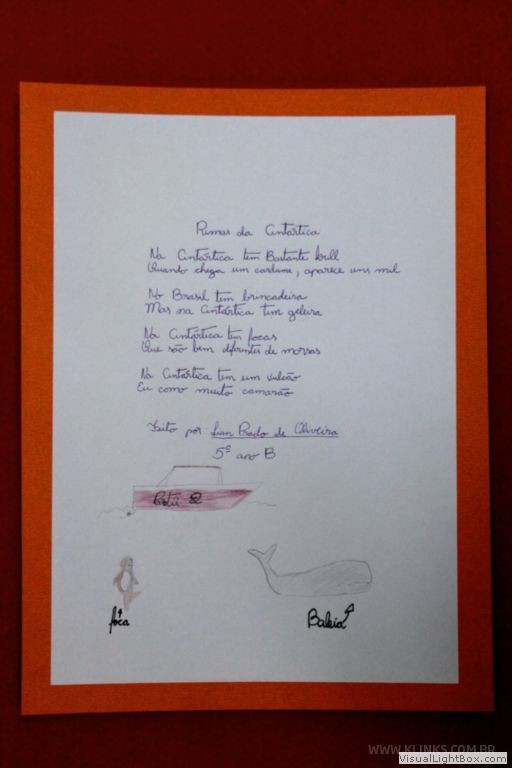 Rimas da Antártica
Na Antártica tem Bastante krill
Quando chega um cardume, aparece uns mil
No Brasil tem brincadeira
Mas na Antártica tem geleira
Na Antártica tem focas
Que são bem diferentes de morsas
Na Antártica tem um vulcão
Eu como muito camarão
Feito por: Lian Prado de Oliveira
5º ano B
2
foca
Baleia
WWW.KLINKS.COM.BR
VisualLightBox.com